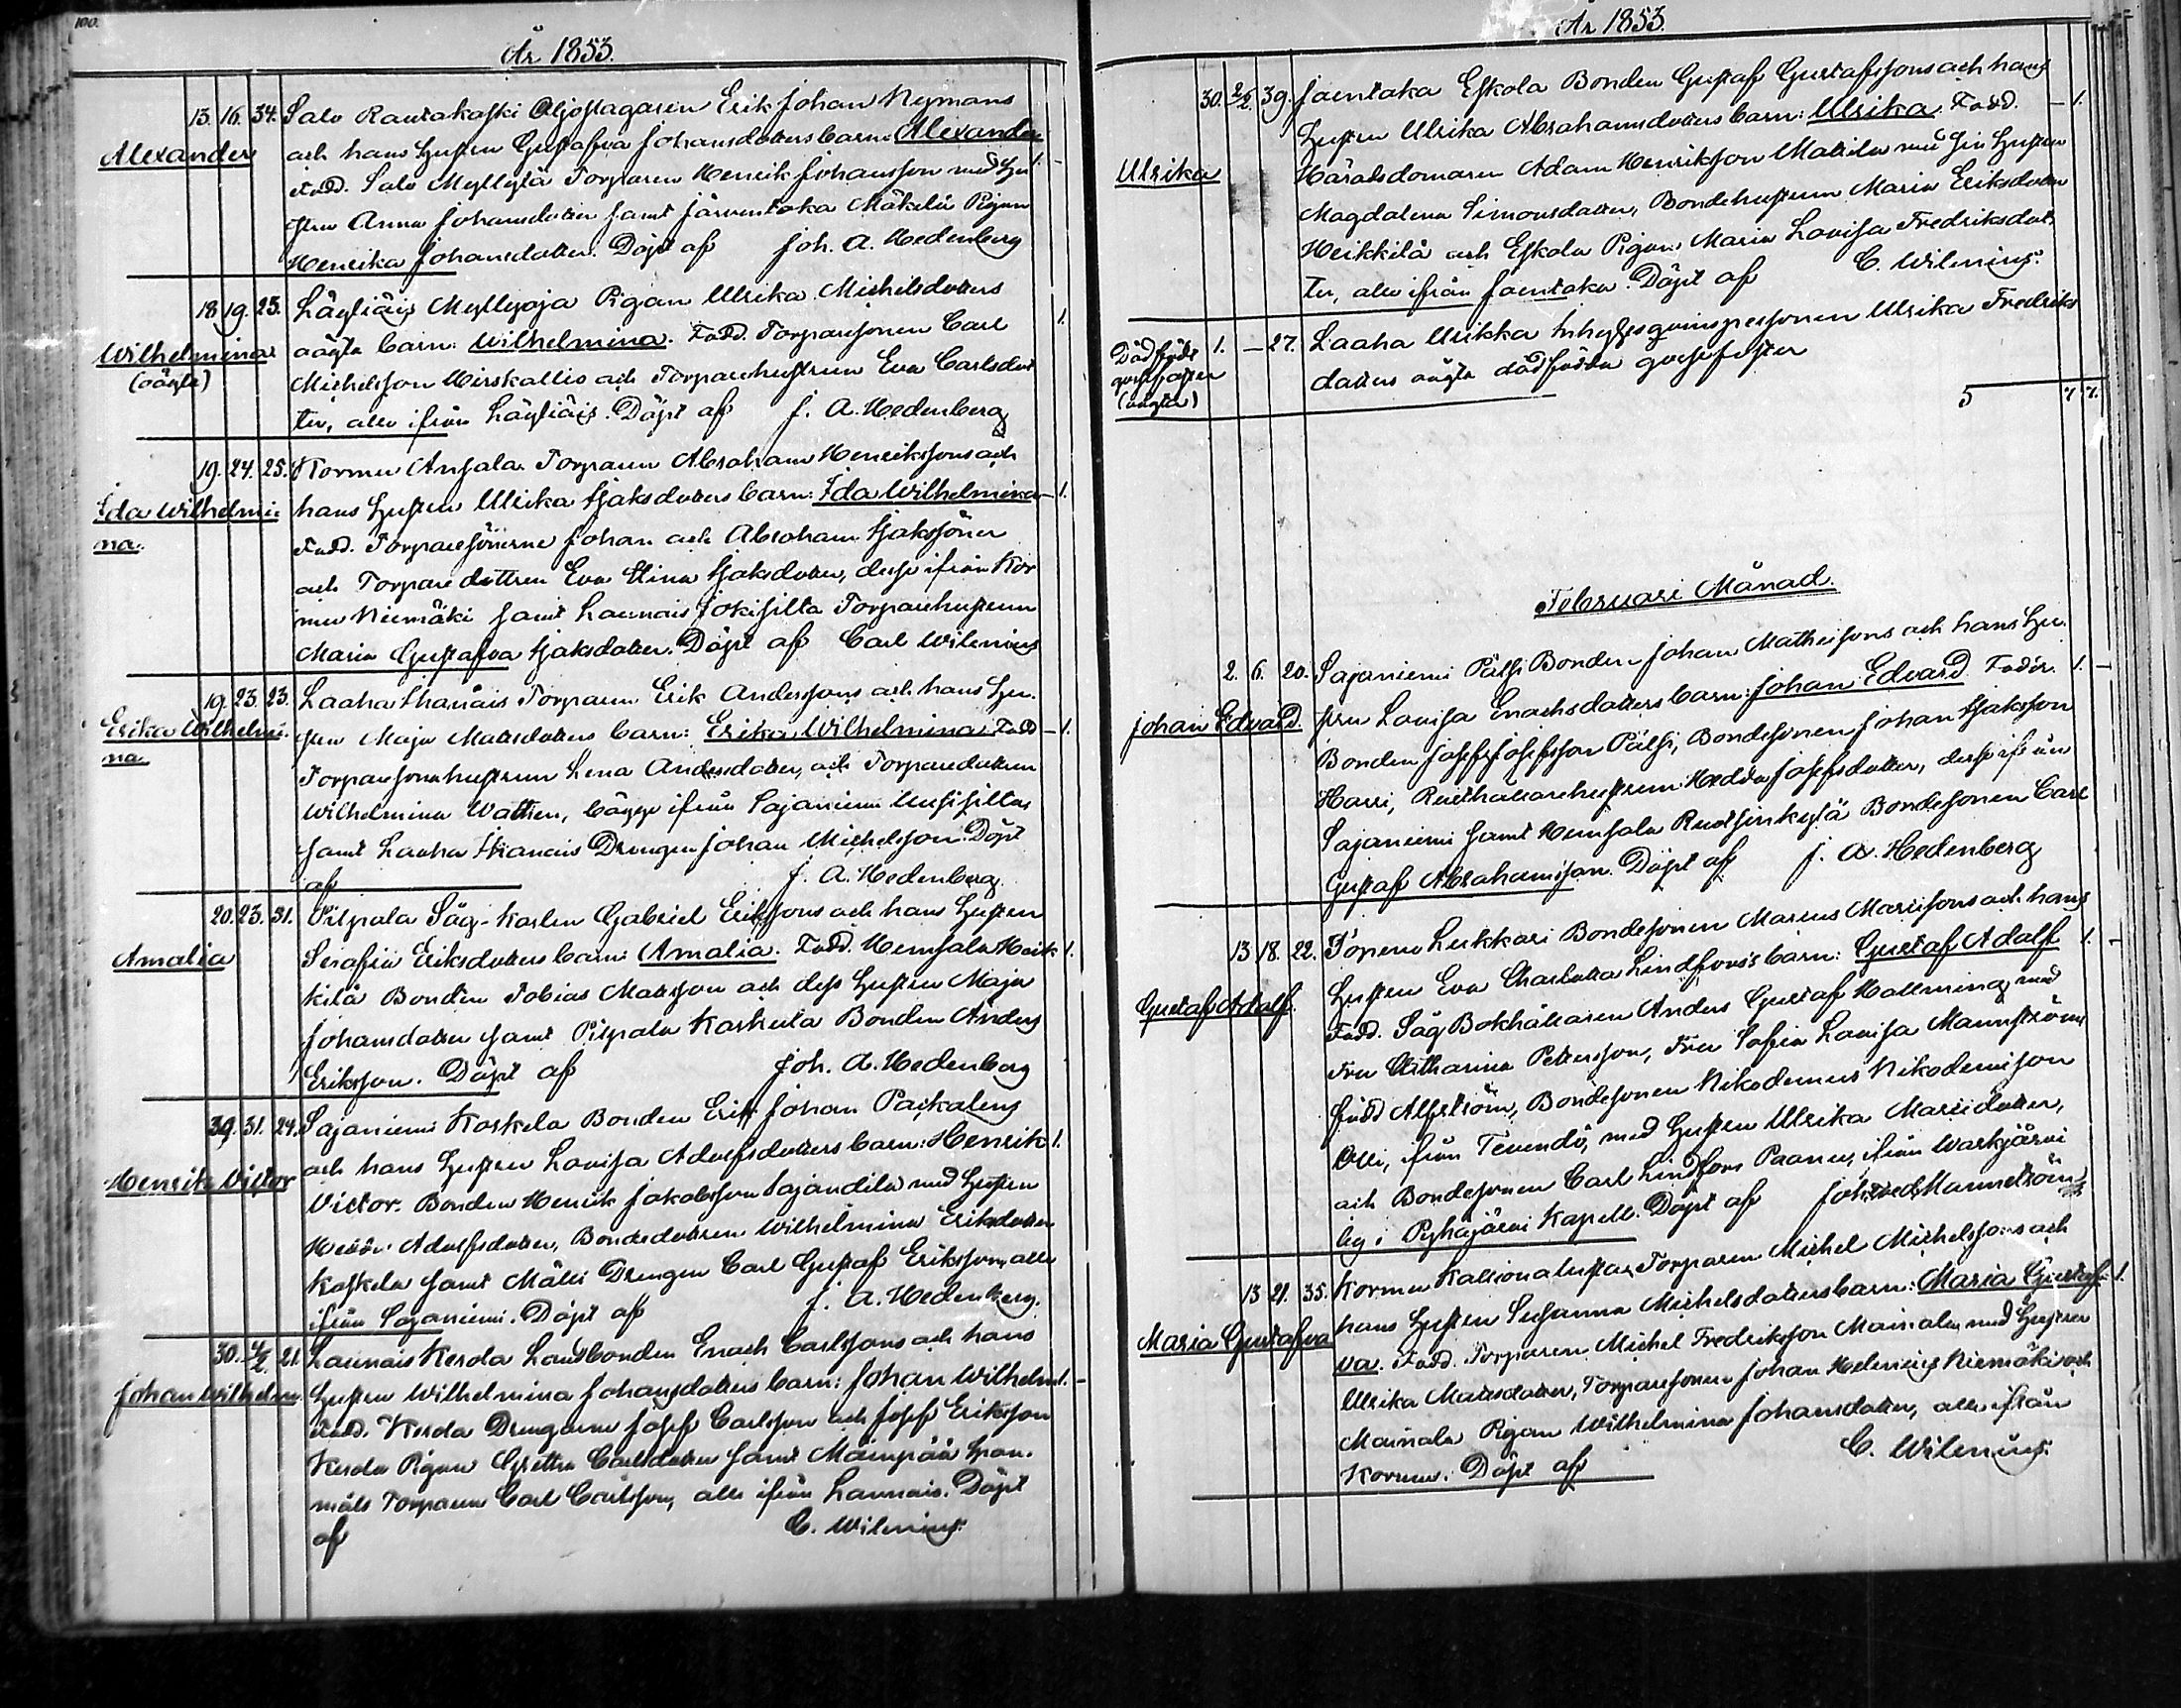 100.
År 1853.
13. 16. 34. Salo Rautakoski Oljoslagaren Erik Johan Nymans
Alexander och hans Hustru Gustafva Johansdotters barn: Alexander 1. -
Fadd. Salo Myllylä Torparen Henrik Johansson med Hu
stru Anna Johansdotter samt Järventaka Mäkelä Pigan
Henrika Johansdotter. Döpt af Joh. A. Hedenberg
18 19. 23. Läyliäis Myllyoja Pigan Ulrika Michelsdotters
Wilhelmina oägta barn: Wilhelmina. Fadd. Torparesonen Carl 1.
(oägta) Michelsson Mirskallio och Torparehustrun Eva Carlsdot
ter, alle ifrån Läyliäis. Döpt af J. A. Hedenberg
19. 24. 25. Kormu Ansala Torparen Abraham Henrikssons och
Ida Wilhelmi- hans Hustru Ulrika Isaksdotters barn: Ida Wilhelmina - 1.
na. Fadd. Torparesönerne Johan och Abraham Isakssöner
och Torparedottren Eva Stina Isaksdotter, desse ifrån Kor
mu Niemäki samt Launais Jokisilta Torparehustrun
Maria Gustafva Isaksdotter. Döpt af Carl Wilenius
19. 23. 23. Laaha Torparen Erik Anderssons och hans Hu-
Erika Wilhelmi- stru Maja Mattsdotters barn: Erika Wilhelmina Fadd - 1.
na. Torparesonhustrun Lena Andersdotter, och Torparedottren
Wilhelmina Watten, bägge ifrån Sajaniemi Uusisilta
samt Laaha Drengen Johan Michelsson. Döpt
af J. A. Hedenberg
20. 23. 31. Pilpala Såg-Karlen Gabriel Erikssons och hans Hustru
Amalia Serafia Eriksdotters barn: Amalia. Fadd. Hemsala Heik 1.
kilä Bonden Tobias Matsson och dess Hustru Maja
Johansdotter samt Pilpala Karkula Bonden Anders
Eriksson. Döpt af Joh. A. Hedenberg
30. 31. 24. Sajaniemi Koskela Bonden Erik Johan Paikalens
Henrik Victor och hans Hustru Lovisa Adolfsdotters barn: Henrik 1.
Victor. Bonden Henrik Jakobsson Sajandila med Hustru
Hedda Adolfsdotter, Bondedottren Wilhelmina Eriksdotter
Koskela samt Mälli Drengen Carl Gustaf Eriksson, alle
ifrån Sajaniemi. Döpt af J. A. Hedenberg.
30. 4/2 21. Launais Kerola Landbonden Enoch Carlssons och hans
Johan Wilhelm. Hustru Wilhelmina Johansdotters barn: Johan Wilhelm 1. -
Fadd. Kerola Drengarne Josef Carlsson och Josef Eriksson
Kerola Pigan Gretha Carlsdotter samt Mäinpää
Torparen Carl Carlsson, alle ifrån Launais. Döpt
af C. Wilenius.
År 1853.
30. 2/2. 39. Joentaka Eskola Bonden Gustaf Gustafssons och hans
Hustru Ulrika Abrahamsdotters barn: Ulrika. Fadd. - 1.
Ulrika Häradsdomaren Adam Henriksson Mattila med sin Hustru
Magdalena Simonsdotter, Bondehustrun Maria Eriksdotter
Heikkilä och Eskola Pigan Maria Lovisa Fredriksdot
ter, alle ifrån Joentaka. Döpt af C. Wilenius.
Dödfödt 1. - 27. Laaha Ulrikka Inhyseqvinspersonen Ulrika Fredriks
gossefoster dotters oägta dödfödda gossefoster
(oägta) 5 7 7.
Februari Månad.
2. 6. 20. Sajaniemi Pälsi Bonden Johan Mathessons och hans Hu- 1. -
Johan Edvard. stru Lovisa Enochsdotters barn: Johan Edvard Faddr.
Bonden Josef Josefsson Pälsi, Bondesonen Johan Isaksson
Harri, Rusthållarehustrun Hedda Josefsdotter, desse ifrån
Sajaniemi samt Hemsala Ruotsinkylä Bondesonen Carl
Gustaf Abrahamsson. Döpt af J. A. Hedenberg
13 18. 22. Töpeno Lukkari Bondesonen Marcus Marcussons och hans
Gustaf Adolf. Hustru Eva Charlotta Lindfors's barn: Gustaf Adolf 1. -
Fadd. Såg Bokhållaren Anders Gustaf Hallming med
Fru Catharina Pettersson, Fru Sofia Lovisa Mannström
född Alfström, Bondesonen Nikodemus Nikodemisson
Olli, ifrån Tevendö, med Hustru Ulrika Marcidotter,
och Bondesonen Carl Lindfors Paanu, ifrån Warkjärvi
by i Pyhäjärvi Kapell. Döpt af Joh. Fred. Mannström
13 21. 35. Kormu Kallionalusta Torparen Michel Michelssons och
Maria Gustafva hans Hustru Susanna Michelsdotters barn: Maria Gustaf- 1.
va. Fadd. Torparen Michel Fredriksson Mainala med Hustru
Ulrika Mattsdotter, Torparesonen Johan Helenius Niemäki och
Mainala Pigan Wilhelmina Johansdotter, alle ifrån
Kormu. Döpt af C. Wilenius.